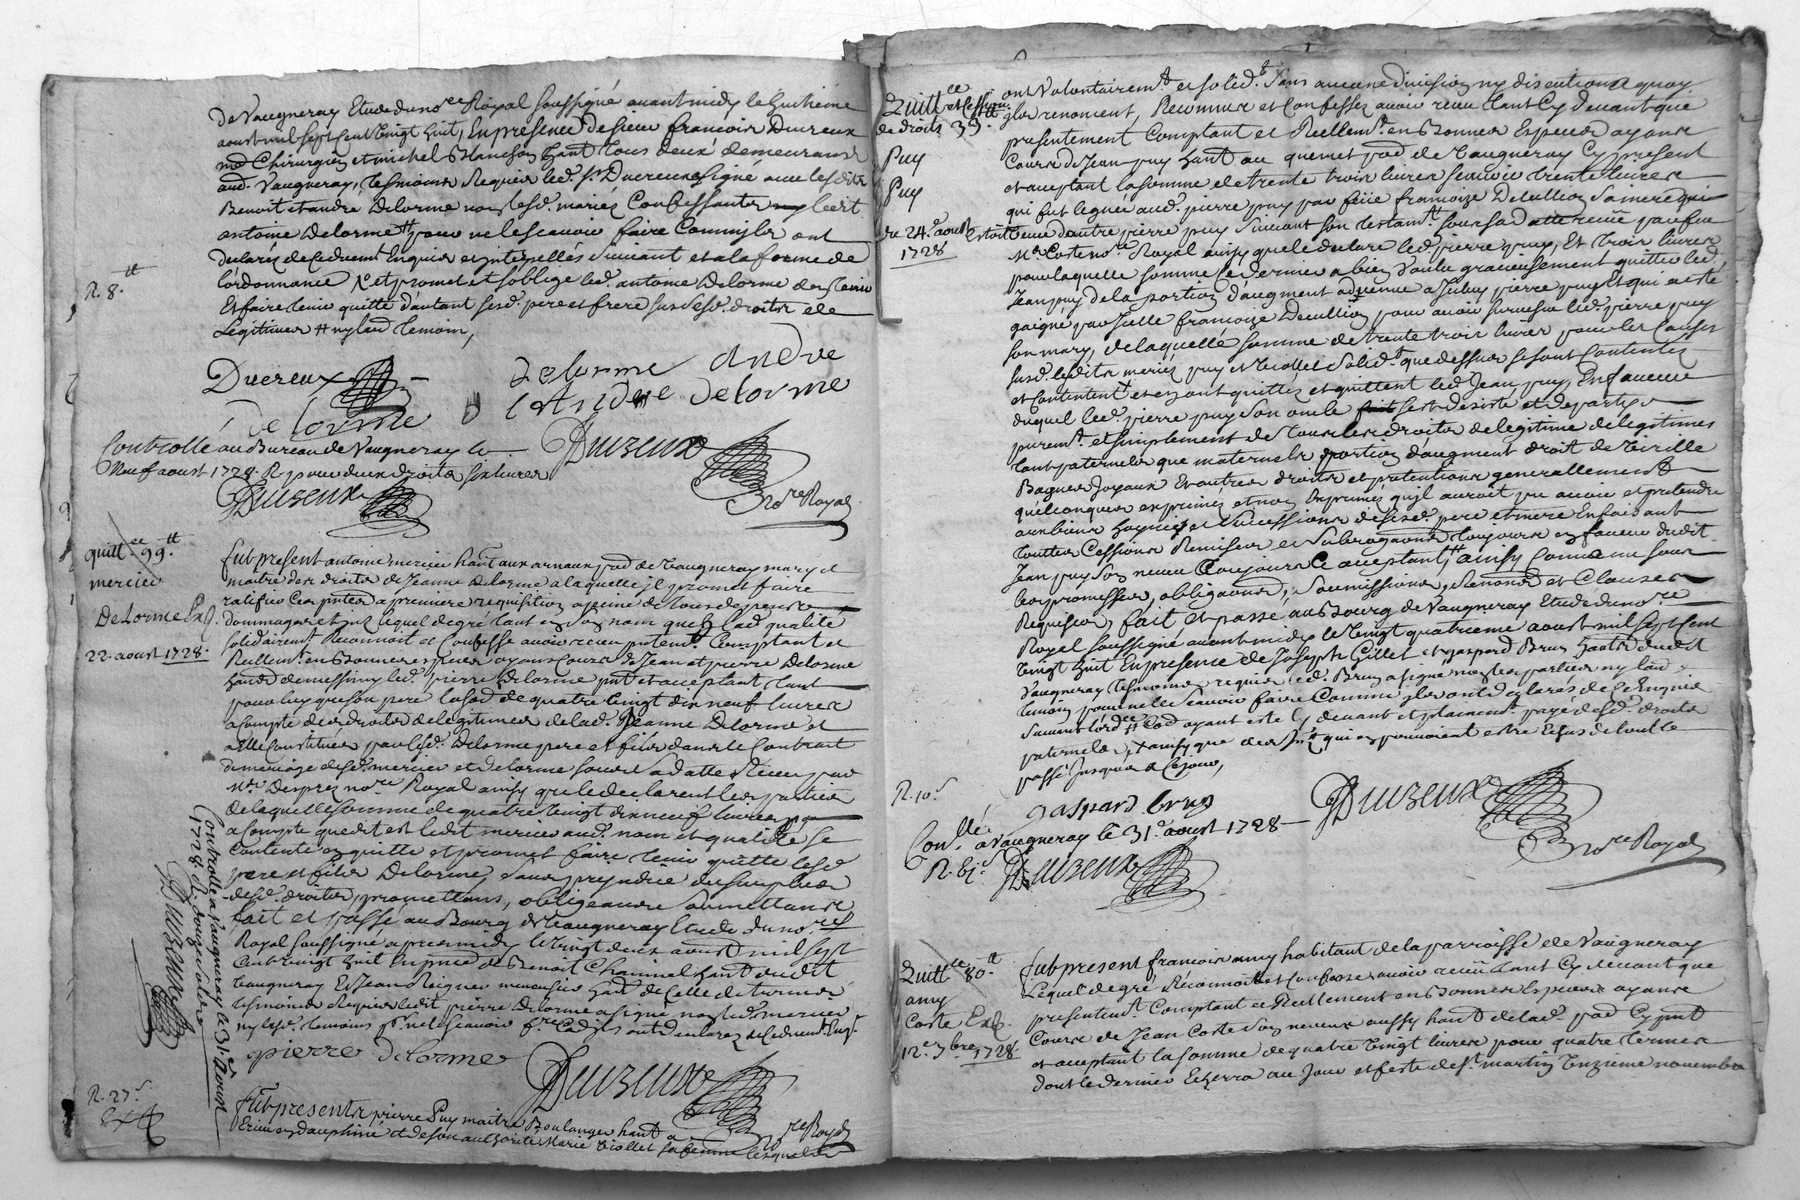 de Vaugneray Etude du no.re Royal soussigné avant midy le huitieme
aoust mil sept cent vingt huit, En presence de sieur francois Ducreux
m.e Chirurgien et michel habitants tous deux demeurants
aud. Vaugneray, tesmoins requis led. s.r Ducreux a signé avec lesdits
Benoit et andré Delorme non lesd. mariez Confessants ny ledit
antoine Delorme pour ne le scavoir faire Comme ils ont
declaré de ce duement Enquis et interpellés suivant et a la forme de
l'ordonnance et promet et s'oblige led. antoine Delorme de tenir
Et faire tenir quitte d'autant sesd. pere et frere sur lesd. droits de
Legitimes ny led temoin,
R. 8.tt
Ducreux
delorme André
De lorme
Controllé au Bureau de Vaugneray le
Neuf aoust 1728. R. pour deux droits six livres
no.re Royal
quitt.ce 99.tt
mercier
DeLorme Exp.
22. aoust 1728.
fut present antoine mercier hant aux arnaux pad de Vaugneray mary et
maitre des droits de Jeanne Delorme a laquelle il promet faire
ratiffier ces pntes a premiere requisition a peine de tous depens
dommages et intz lequel de gré tant en son nom que led qualité
solidairemt Reconnoit et Confesse avoir receu presentemt Comptant et
Reellemt en Bonnes especes ayant cours de Jean et pierre Delorme
hants de messimy led. pierre Delorme pnt et acceptant tant
pour luy que son pere la so.e de quatre vingt dix neuf livres
a compte des droits de legitimes de lad. Jeanne Delorme et
a elle constituées par lesd. Delorme pere et fils dans le Contrat
de mariage desd. mercier et Delorme sous sa datte Receu par
M.re Desprez no.re Royal ainsy que le declarent les parties
de laquelle somme de quatre vingt dix neuf livres
a compte que dit est ledit mercier aud. nom et qualité se
Contente en quitte et promet faire tenir quitte lesd
pere et fils Delorme, sans prejudice du surplus
desd. droits, promettans, obligeans soumettans
fait et passé au Bourg de Vaugneray Etude du no.re
Royal soussigné apres midy le vingt deux aoust mil sept
cent vingt huit En pnce de Benoit Chammel hant dudit
Vaugneray Et Jean menusier hant de celle de
tesmoins requis ledit pierre Delorme a signé non led. mercier
ny lesd. temoins pr. ne le scavoir f.re Co.e ils ont declarez de ce duemt Enq.
pierre delorme
Controllé a Vaugneray le 31.e Aoust
1728. R. douze sols
R. 27.s
no.re Royal
furent presents pierre Puy maitre Boulanger hant a
en dauphiné et de son authorité Marie triollet sa femme lesquels
Quitt.ce et Cession
de droits 33.tt
Puy
Puy
du 24.e aoust
1728
ont Volontairemt et solidt sans aucune division ny discution a quoy
ils renoncent, Reconnus et Confessez avoir receu tant Cy devant que
presentement Comptant et Reellemt en Bonnes Especes ayant
Cours de Jean puy hant au quemet pad de Vaugneray Cy present
et acceptant la somme de trente trois livres scavoir trente livres
qui fut leguée aud. pierre puy par feüe francoise Decultieu sa mere qui
estoit veuve d'autre pierre puy suivant son testamt sous sa datte receu par feu
M.e Coste no.re Royal ainsy que le declare led. pierre puy, Et trois livres
pour laquelle somme ce dernier a bien voulu gracieusement quitter led.
Jean puy de la portion d'augment advenue a Jceluy pierre puy et qui a esté
gaigné par Jcelle francoise Decultieu pour avoir survescu led. pierre puy
son mary, de laquelle somme de trente trois livres pour les Causes
susd. lesdits mariez puy et triollet solidt que dessus se sont Contentez
et Contentent et en ont quittez et quittent led. Jean puy, En faveur
duquel led. pierre puy son oncle s'est desisté et departy
puremt et simplement de tous les droits de legitime de legitimes
tant paternels que maternels portion d'augment droit de
Bagues Joyaux Et autres droits et pretentions generallement
quelconques exprimez et non exprimez qu'il auroit pu avoir et pretendre
aux biens hoyries et successions de sesd. pere et mere En faisant
toutes Cessions Remises et Subrogations toujours en faveur dudit
Jean puy son neveu toujours Ce acceptant ainsy Comme sous
les promesses, obligaons, soumissions, renonons et Clauses
Requises, fait et passé au Bourg de Vaugneray Etude du no.re
Royal soussigné avant midy le vingt quatrieme aoust mil sept cent
vingt huit En presence de Joseph Gillet et Gaspard Brun hants dudit
Vaugneray tesmoins requis led. Brun a signé non les parties ny l'au.
temoin pour ne le scavoir faire Comme ils ont declarés de ce Enquis
suivant l'ord.ce
paternels, et ainsy que des
passé jusques a Ce jour,
R. 10.s
gaspard brun
Con.llé a Vaugneray le 31.e aoust 1728
no.re Royal
Quitt.ce 80.tt
amy
Coste Exp.
12.e 7bre 1728
fut present francois amy habitant de la parroisse de Vaugneray
Lequel de gré Reconnoit et Confesse avoir receu tant Cy devant que
presentemt Comptant et Reellement en Bonnes Especes ayants
Cours de Jean Coste son neveu aussy hant de lad. pad Cy pnt
et acceptant la somme de quatre vingt livres pour quatre termes
dont le dernier Echerra au Jour et feste de St. martin Unzieme novembre